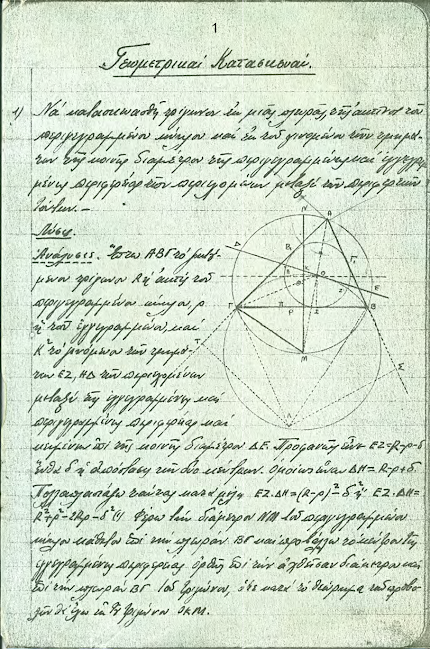 1
Γεωμετρικαί Κατασκευαί.
1) Νά κατασκευασθῇ τρίγωνον ἐκ μιᾶς πλευρᾶς τῆς ἀκτῖνος τοῦ
περιγεγραμμένου κύκλου καί ἐκ τοῦ γινομένου τῶν τμημά-
των τῆς κοινῆς διαμέτρου τῆς περιγεγραμμένης καί ἐγγεγραμ-
μένης περιφερείας τῶν περιεχομένων μεταξύ τῶν περιφερειῶν
τούτων.-
Λύσις.
Ἀνάλυσις. Ἔστω ΑΒΓ τό ζητού-
μενον τρίγωνον R ἡ ἀκτίς τοῦ
περιγεγραμμένου κύκλου, ρ
ἡ τοῦ ἐγγεγραμμένου, καί
Κ² τό γινόμενον τῶν τμημά-
των ΕΖ, ΗΔ τῶν περιεχομένων
μεταξύ τῆς ἐγγεγραμμένης καί
περιγεγραμμένης περιφερείας καί
κειμένων ἐπί τῆς κοινῆς διαμέτρου ΔΕ. Προφανῶς εἶναι ΕΖ=R-ρ-δ
ἔνθα δ ἡ ἀπόστασις τῶν δύο κέντρων. ὁμοίως εἶναι ΔΗ=R-ρ+δ.
Πολλαπλασιάζω ταύτας κατά μέλη ΕΖ.ΔΗ=(R-ρ)²-δ² ἤ ΕΖ.ΔΗ=
R²+ρ²-2Rρ-δ² (1) Φέρω τήν διάμετρον ΝΜ τοῦ περιγεγραμμένου
κύκλου κάθετον ἐπί τήν πλευράν ΒΓ καί προβάλλω τό κέντρον τῆς
ἐγγεγραμμένης περιφερείας ἐπί τήν ἀχθεῖσαν διάμετρον καί
ἐπί τήν πλευράν ΒΓ τοῦ τριγώνου, ὅτε κατά τό θεώρημα τῶν προβο-
λῶν θά ἔχω ἐκ τοῦ τριγώνου ΟΚΜ.
Ν
Α
Δ
Ε
Γ
Β
Μ
Τ
Σ
Λ